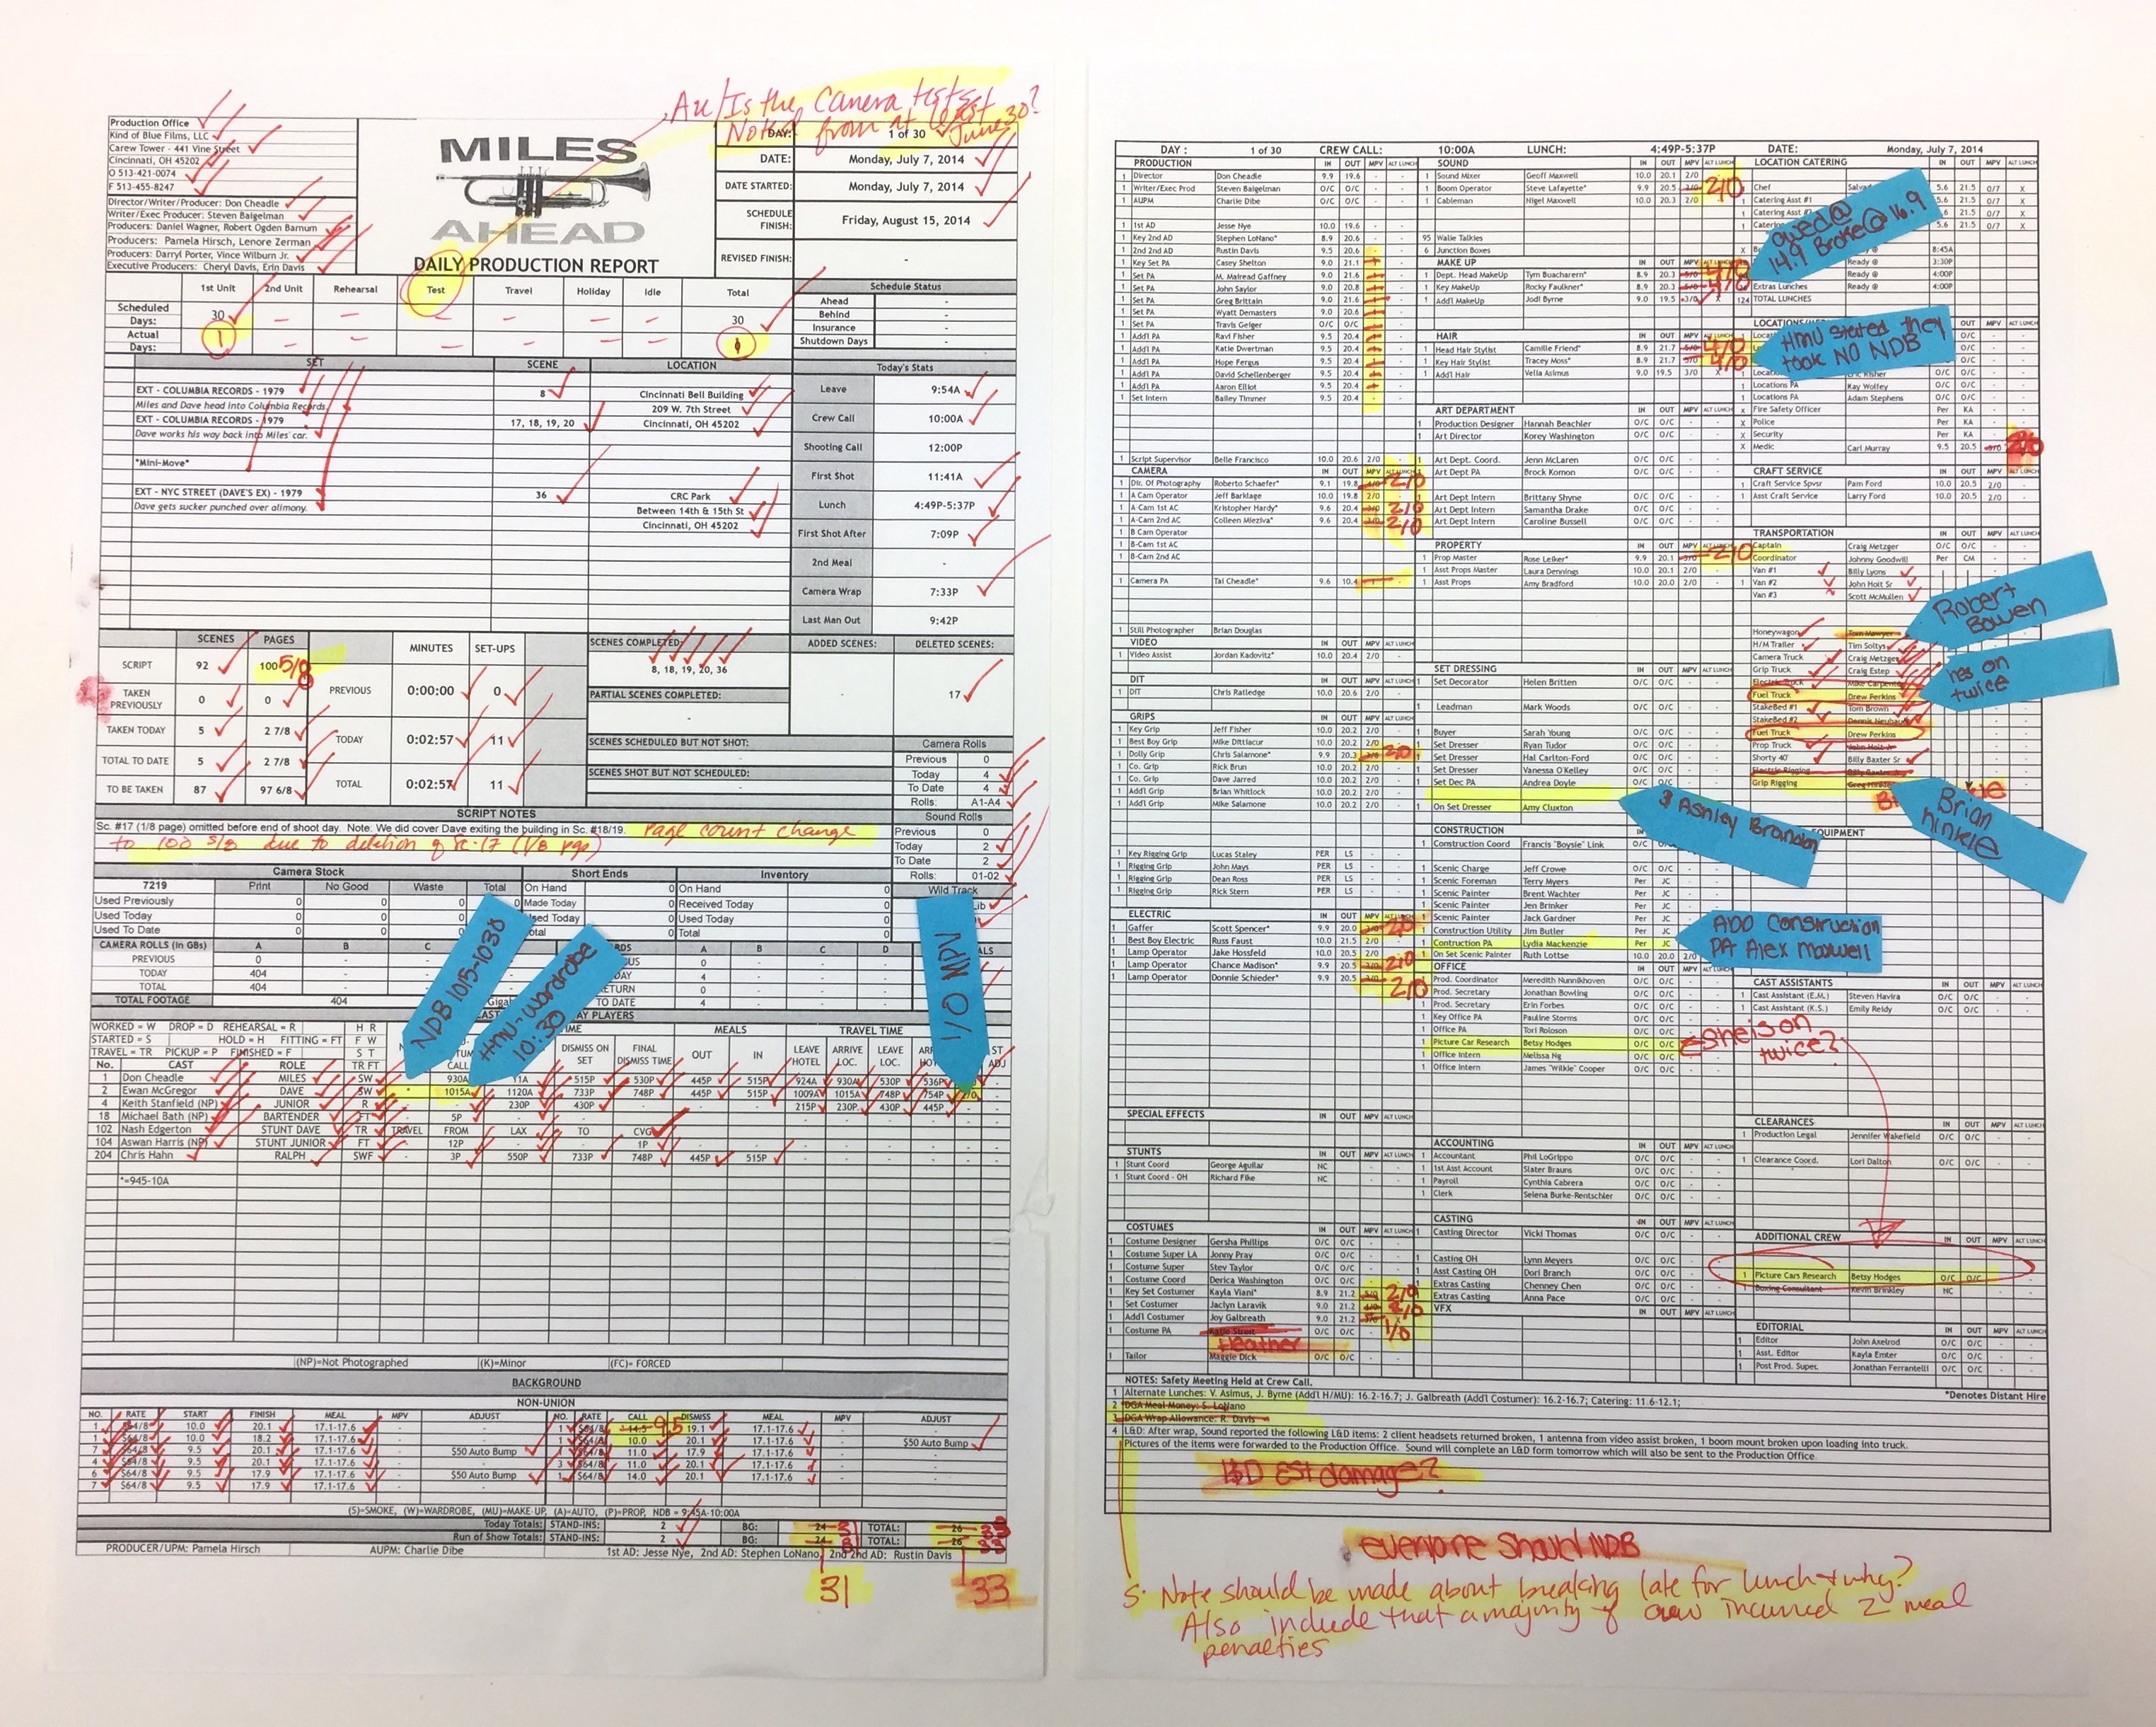 Au/Is the Camera test set
Noted from at least June 30?
Production Office
Kind of Blue Films, LLC
Carew Tower - 441 Vine Street
Cincinnati, OH 45202
O 513-421-0074
F 513-455-8247
Director/Writer/Producer: Don Cheadle
Writer/Exec Producer: Steven Baigelman
Producers: Daniel Wagner, Robert Ogden Barnum
Producers: Pamela Hirsch, Lenore Zerman
Producers: Darryl Porter, Vince Wilburn Jr.
Executive Producers: Cheryl Davis, Erin Davis
MILES
AHEAD
DAILY PRODUCTION REPORT
DAY: 1 of 30
DATE: Monday, July 7, 2014
DATE STARTED: Monday, July 7, 2014
SCHEDULE FINISH: Friday, August 15, 2014
REVISED FINISH: -
1st Unit 2nd Unit Rehearsal Test Travel Holiday Idle Total
Scheduled Days: 30 - - - - - - 30
Actual Days: 1 - - - - - - 1
Schedule Status
Ahead -
Behind -
Insurance -
Shutdown Days -
SET SCENE LOCATION
EXT - COLUMBIA RECORDS - 1979 8 Cincinnati Bell Building
Miles and Dave head into Columbia Records. 209 W. 7th Street
EXT - COLUMBIA RECORDS - 1979 17, 18, 19, 20 Cincinnati, OH 45202
Dave works his way back into Miles' car.
*Mini-Move*
EXT - NYC STREET (DAVE'S EX) - 1979 36 CRC Park
Dave gets sucker punched over alimony. Between 14th & 15th St
Cincinnati, OH 45202
Today's Stats
Leave 9:54A
Crew Call 10:00A
Shooting Call 12:00P
First Shot 11:41A
Lunch 4:49P-5:37P
First Shot After 7:09P
2nd Meal -
Camera Wrap 7:33P
Last Man Out 9:42P
SCENES PAGES MINUTES SET-UPS
SCRIPT 92 100 5/8
TAKEN PREVIOUSLY 0 0 PREVIOUS 0:00:00 0
TAKEN TODAY 5 2 7/8 TODAY 0:02:57 11
TOTAL TO DATE 5 2 7/8
TO BE TAKEN 87 97 6/8 TOTAL 0:02:57 11
SCENES COMPLETED: ADDED SCENES: DELETED SCENES:
8, 18, 19, 20, 36 - 17
PARTIAL SCENES COMPLETED:
SCENES SCHEDULED BUT NOT SHOT:
SCENES SHOT BUT NOT SCHEDULED:
Camera Rolls
Previous 0
Today 4
To Date 4
Rolls: A1-A4
Sound Rolls
Previous 0
Today 2
To Date 2
Rolls: 01-02
Wild Track
SCRIPT NOTES
Sc. #17 (1/8 page) omitted before end of shoot day. Note: We did cover Dave exiting the building in Sc. #18/19. Page count change
to 100 5/8 due to deletion of sc. 17 (1/8 pgs)
Camera Stock Short Ends Inventory
7219 Print No Good Waste Total On Hand 0 On Hand 0
Used Previously 0 0 0 0 Made Today 0 Received Today 0
Used Today 0 0 0 0 Used Today 0 Used Today 0
Used To Date 0 0 0 0 Total 0 Total 0
CAMERA ROLLS (in GBs) A B C A B C D
PREVIOUS 0 - - 0
TODAY 404 - - 4
TOTAL 404 - - RETURN 0
TOTAL FOOTAGE 404 TO DATE 4
NDB 1015-1030
HMU-Wardrobe 10:30
1/0 MPV
WORKED = W DROP = D REHEARSAL = R
STARTED = S HOLD = H FITTING = FT
TRAVEL = TR PICKUP = P FINISHED = F
DISMISS ON SET FINAL DISMISS TIME MEALS OUT IN TRAVEL TIME LEAVE HOTEL ARRIVE LOC. LEAVE LOC.
No. CAST ROLE
1 Don Cheadle MILES SW 930A 11A 515P 530P 445P 515P 924A 930A 530P 536P
2 Ewan McGregor DAVE SW * 1015A 1120A 733P 748P 445P 515P 1009A 1015A 748P 754P
4 Keith Stanfield (NP) JUNIOR R - 230P 430P 215P 230P 430P 445P
18 Michael Bath (NP) BARTENDER FT 5P
102 Nash Edgerton STUNT DAVE TR TRAVEL FROM LAX TO CVG
104 Aswan Harris (NP) STUNT JUNIOR FT 12P 1P
204 Chris Hahn RALPH SWF 3P 550P 733P 748P 445P 515P
*=945-10A
(NP)=Not Photographed (K)=Minor (FC)= FORCED
BACKGROUND
NON-UNION
NO. RATE START FINISH MEAL MPV ADJUST NO. RATE CALL DISMISS MEAL MPV ADJUST
1 $64/8 10.0 20.1 17.1-17.6 - 1 $64/8 14.5 9.5 19.1 17.1-17.6
1 $64/8 10.0 18.2 17.1-17.6 - 1 $64/8 10.0 20.1 17.1-17.6 $50 Auto Bump
7 $64/8 9.5 20.1 17.1-17.6 - $50 Auto Bump 1 $64/8 11.0 17.9 17.1-17.6
4 $64/8 9.5 20.1 17.1-17.6 - 3 $64/8 11.0 20.1 17.1-17.6
6 $64/8 9.5 17.9 17.1-17.6 - $50 Auto Bump 1 $64/8 14.0 20.1 17.1-17.6
7 $64/8 9.5 17.9 17.1-17.6
(S)=SMOKE, (W)=WARDROBE, (MU)=MAKE-UP, (A)=AUTO, (P)=PROP, NDB = 9:45A-10:00A
Today Totals: STAND-INS: 2 BG: 24 31 TOTAL: 26 33
Run of Show Totals: STAND-INS: 2 BG: 24 31 TOTAL: 26 33
PRODUCER/UPM: Pamela Hirsch AUPM: Charlie Dibe 1st AD: Jesse Nye, 2nd AD: Stephen LoNano, 2nd 2nd AD: Rustin Davis
31 33
DAY: 1 of 30 CREW CALL: 10:00A LUNCH: 4:49P-5:37P DATE: Monday, July 7, 2014
PRODUCTION IN OUT MPV ALT LUNCH
1 Director Don Cheadle 9.9 19.6 - -
1 Writer/Exec Prod Steven Baigelman O/C O/C - -
1 AUPM Charlie Dibe O/C O/C - -
1 1st AD Jesse Nye 10.0 19.6
1 Key 2nd AD Stephen LoNano* 8.9 20.6
1 2nd 2nd AD Rustin Davis 9.5 20.6
1 Key Set PA Casey Shelton 9.0 21.1
1 Set PA M. Mairead Gaffney 9.0 21.6
1 Set PA John Saylor 9.0 20.8
1 Set PA Greg Brittain 9.0 21.6
1 Set PA Wyatt Demasters 9.0 20.6
1 Set PA Travis Geiger O/C O/C
1 Addl PA Ravi Fisher 9.5 20.4
1 Addl PA Katie Dwertman 9.5 20.4
1 Addl PA Hope Fergus 9.5 20.4
1 Addl PA David Schellenberger 9.5 20.4
1 Addl PA Aaron Elliot 9.5 20.4
1 Set Intern Bailey Timmer 9.5 20.4
1 Script Supervisor Belle Francisco 10.0 20.6 2/0
CAMERA IN OUT MPV ALT LUNCH
1 Dir. Of Photography Roberto Schaefer* 9.1 19.8 2/0
1 A Cam Operator Jeff Barklage 10.0 19.8 2/0
1 A-Cam 1st AC Kristopher Hardy* 9.6 20.4 2/0
1 A-Cam 2nd AC Colleen Mleziva* 9.6 20.4 2/0
1 B Cam Operator
1 B-Cam 1st AC
1 B-Cam 2nd AC
1 Camera PA Tai Cheadle* 9.6 10.4
1 Still Photographer Brian Douglas
VIDEO IN OUT MPV ALT LUNCH
1 Video Assist Jordan Kadovitz* 10.0 20.4 2/0
DIT IN OUT MPV ALT LUNCH
1 DIT Chris Ratledge 10.0 20.6 2/0
GRIPS IN OUT MPV ALT LUNCH
1 Key Grip Jeff Fisher 10.0 20.2 2/0
1 Best Boy Grip Mike Dittiacur 10.0 20.2 2/0
1 Dolly Grip Chris Salamone* 9.9 20.3 2/0
1 Co. Grip Rick Brun 10.0 20.2 2/0
1 Co. Grip Dave Jarred 10.0 20.2 2/0
1 Addl Grip Brian Whitlock 10.0 20.2 2/0
1 Addl Grip Mike Salamone 10.0 20.2 2/0
1 Key Rigging Grip Lucas Staley PER LS
1 Rigging Grip John Mays PER LS
1 Rigging Grip Dean Ross PER LS
1 Rigging Grip Rick Stern PER LS
ELECTRIC IN OUT MPV ALT LUNCH
1 Gaffer Scott Spencer* 9.9 20.0 2/0
1 Best Boy Electric Russ Faust 10.0 21.5 2/0
1 Lamp Operator Jake Hossfeld 10.0 20.5 2/0
1 Lamp Operator Chance Madison* 9.9 20.5 2/0
1 Lamp Operator Donnie Schieder* 9.9 20.5 2/0
SPECIAL EFFECTS IN OUT MPV ALT LUNCH
STUNTS IN OUT MPV ALT LUNCH
1 Stunt Coord George Aguilar NC
1 Stunt Coord - OH Richard Fike NC
COSTUMES IN OUT MPV ALT LUNCH
1 Costume Designer Gersha Phillips O/C O/C
1 Costume Super LA Jonny Pray O/C O/C
1 Costume Super Stev Taylor O/C O/C
1 Costume Coord Derica Washington O/C O/C
1 Key Set Costumer Kayla Viani* 8.9 21.2 2/0
1 Set Costumer Jaclyn Laravik 9.0 21.2 2/0
1 Addl Costumer Joy Galbreath 9.0 21.2 1/0
1 Costume PA Heather O/C O/C
1 Tailor Maggie Dick O/C O/C
SOUND IN OUT MPV ALT LUNCH
1 Sound Mixer Geoff Maxwell 10.0 20.1 2/0
1 Boom Operator Steve Lafayette* 9.9 20.5 2/0
1 Cableman Nigel Maxwell 10.0 20.3 2/0
95 Walie Talkies
6 Junction Boxes
MAKE UP IN OUT MPV ALT LUNCH
1 Dept. Head MakeUp Tym Buacharern* 8.9 20.3 4/0
1 Key MakeUp Rocky Faulkner* 8.9 20.3 4/0
1 Addl MakeUp Jodi Byrne 9.0 19.5 3/0 X
HAIR IN OUT MPV ALT LUNCH
1 Head Hair Stylist Camille Friend* 8.9 21.7 4/0
1 Key Hair Stylist Tracey Moss* 8.9 21.7 4/0
1 Addl Hair Vella Asimus 9.0 19.5 3/0 X
ART DEPARTMENT IN OUT MPV ALT LUNCH
1 Production Designer Hannah Beachler O/C O/C
1 Art Director Korey Washington O/C O/C
1 Art Dept. Coord. Jenn McLaren O/C O/C
1 Art Dept PA Brock Komon O/C O/C
1 Art Dept Intern Brittany Shyne O/C O/C
1 Art Dept Intern Samantha Drake O/C O/C
1 Art Dept Intern Caroline Bussell O/C O/C
PROPERTY IN OUT MPV ALT LUNCH
1 Prop Master Rose Leiker* 9.9 20.1 2/0
1 Asst Props Master Laura Dennings 10.0 20.1 2/0
1 Asst Props Amy Bradford 10.0 20.0 2/0
SET DRESSING IN OUT MPV ALT LUNCH
1 Set Decorator Helen Britten O/C O/C
1 Leadman Mark Woods O/C O/C
1 Buyer Sarah Young O/C O/C
1 Set Dresser Ryan Tudor O/C O/C
1 Set Dresser Hal Carlton-Ford O/C O/C
1 Set Dresser Vanessa O'Kelley O/C O/C
1 Set Dec PA Andrea Doyle O/C O/C
1 On Set Dresser Amy Cluxton
CONSTRUCTION
1 Construction Coord Francis "Boysie" Link O/C O/C
1 Scenic Charge Jeff Crowe O/C O/C
1 Scenic Foreman Terry Myers Per JC
1 Scenic Painter Brent Wachter Per JC
1 Scenic Painter Jen Brinker Per JC
1 Scenic Painter Jack Gardner Per JC
1 Construction Utility Jim Butler Per JC
1 Contruction PA Lydia Mackenzie Per JC
1 On Set Scenic Painter Ruth Lottse 10.0 20.0 2/0
OFFICE IN OUT MPV ALT LUNCH
1 Prod. Coordinator Meredith Nunnikhoven O/C O/C
1 Prod. Secretary Jonathan Bowling O/C O/C
1 Prod. Secretary Erin Forbes O/C O/C
1 Key Office PA Pauline Storms O/C O/C
1 Office PA Tori Roloson O/C O/C
1 Picture Car Research Betsy Hodges O/C O/C
1 Office Intern Melissa Ng O/C O/C
1 Office Intern James "Wilkie" Cooper O/C O/C
ACCOUNTING IN OUT MPV ALT LUNCH
1 Accountant Phil LoGrippo O/C O/C
1 1st Asst Account Slater Brauns O/C O/C
1 Payroll Cynthia Cabrera O/C O/C
1 Clerk Selena Burke-Rentschler O/C O/C
CASTING IN OUT MPV ALT LUNCH
1 Casting Director Vicki Thomas O/C O/C
1 Casting OH Lynn Meyers O/C O/C
1 Asst Casting OH Dori Branch O/C O/C
1 Extras Casting Chenney Chen O/C O/C
1 Extras Casting Anna Pace O/C O/C
VFX IN OUT MPV ALT LUNCH
LOCATION CATERING IN OUT MPV ALT LUNCH
Chef 5.6 21.5 0/7 X
1 Catering Asst #1 5.6 21.5 0/7 X
1 Catering Asst 5.6 21.5 0/7 X
1 5.6 21.5 0/7 X
8:45A
Ready @ 3:30P
Ready @ 4:00P
Extras Lunches Ready @ 4:00P
124 TOTAL LUNCHES
owed @ 14.9 Broke @ 16.9
HMU stated they took NO NDB
1 Locations PA Kay Wolfey O/C O/C
1 Locations PA Adam Stephens O/C O/C
X Fire Safety Officer Per KA
X Police Per KA
X Security Per KA
X Medic Carl Murray 9.5 20.5 2/0
CRAFT SERVICE IN OUT MPV ALT LUNCH
1 Craft Service Spvsr Pam Ford 10.0 20.5 2/0
1 Asst Craft Service Larry Ford 10.0 20.5 2/0
TRANSPORTATION IN OUT MPV ALT LUNCH
Captain Craig Metzger O/C O/C
Coordinator Johnny Goodwill Per CM
Van #1 Billy Lyons
Van #2 John Holt Sr
Van #3 Scott McMullen
Robert Bowen
Honeywagon Tom Mawyer
H/M Trailer Tim Soltys
Camera Truck Craig Metzger
Grip Truck Craig Estep
Electric Truck Mike Carpenter
Fuel Truck Drew Perkins
hes on twice
StakeBed #1 Tom Brown
StakeBed #2 Dennis Neubauer
Fuel Truck Drew Perkins
Prop Truck John Holt Jr
Shorty 40' Billy Baxter Sr
Electric Rigging Billy Baxter Jr
Grip Rigging
Brian hinkle
EQUIPMENT
& Ashley Brandon
ADD Construction PA Alex Maxwell
CAST ASSISTANTS IN OUT MPV ALT LUNCH
1 Cast Assistant (E.M.) Steven Havira O/C O/C
1 Cast Assistant (K.S.) Emily Reidy O/C O/C
she is on twice?
CLEARANCES IN OUT MPV ALT LUNCH
1 Production Legal Jennifer Wakefield O/C O/C
1 Clearance Coord. Lori Dalton O/C O/C
ADDITIONAL CREW IN OUT MPV ALT LUNCH
1 Picture Cars Research Betsy Hodges O/C O/C
1 Boxing Consultant Kevin Brinkley NC
EDITORIAL IN OUT MPV ALT LUNCH
1 Editor John Axelrod O/C O/C
1 Asst. Editor Kayla Emter O/C O/C
1 Post Prod. Super. Jonathan Ferrantelli O/C O/C
NOTES: Safety Meeting Held at Crew Call. *Denotes Distant Hire
1 Alternate Lunches: V. Asimus, J. Byrne (Add'l H/MU): 16.2-16.7; J. Galbreath (Add'l Costumer): 16.2-16.7; Catering: 11.6-12.1;
2 DGA Meal Money: S. LoNano
3 DGA Wrap Allowance: R. Davis
4 L&D: After wrap, Sound reported the following L&D items: 2 client headsets returned broken, 1 antenna from video assist broken, 1 boom mount broken upon loading into truck.
Pictures of the items were forwarded to the Production Office. Sound will complete an L&D form tomorrow which will also be sent to the Production Office.
L&D Est damage?
everyone should NDB
5. Note should be made about breaking late for lunch & why?
Also include that a majority of crew incurred 2 meal
penalties